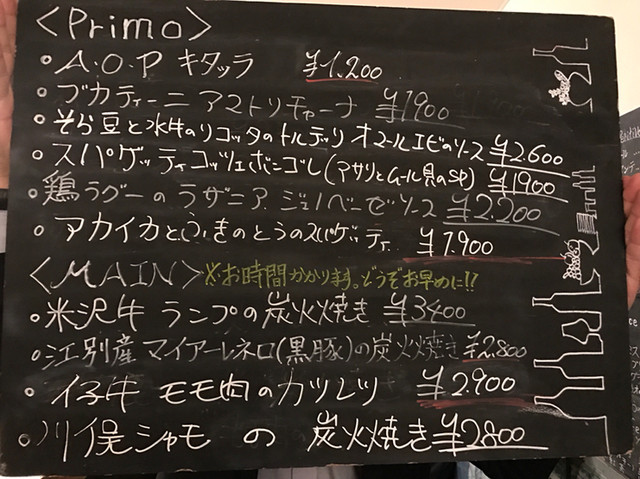 <Primo>
・A.O.P キタッラ ¥1,200
・ブカティーニ アマトリチャーナ ¥1900
・そら豆と水牛のリコッタのトルテッリ オマールエビのソース ¥2.600
・スパゲッティ コッツェボンゴレ(アサリとムール貝のSP) ¥1900
・鶏ラグーのラザニア ジェノベーゼソース ¥2.200
・アカイカとふきのとうのスパゲッティ ¥1,900
<MAIN> ※お時間かかります。どうぞお早めに!!
・米沢牛 ランプの炭火焼き ¥3400
・江別産 マイアーレネロ(黒豚)の炭火焼き ¥2.800
・仔牛 モモ肉のカツレツ ¥2.900
・川俣シャモ の 炭火焼き ¥2800